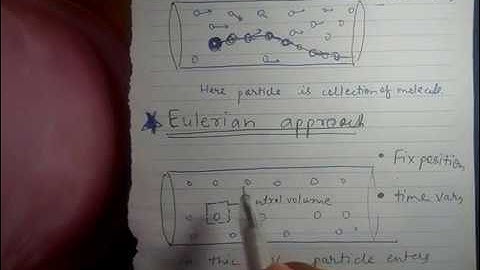 Here particle is collection of molecule
Eulerian approach
• Fix position,
volume
• time vary
in this particle enters